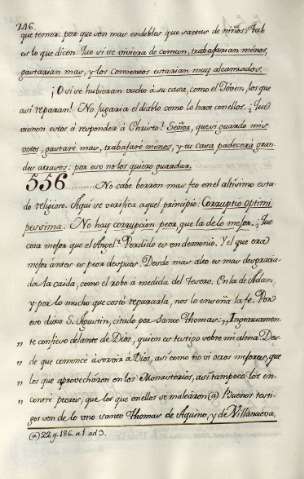 246.
que temer, por que son mas endebles que sartas de vidrios. Aab
es lo que dicen. Que si se viviera de comun, trabajarian menos,
gastarian mas, y los conventos estarian muy alcanzados.
¡O si se hubieran cado à su casa, como el Joben, los que
asi reparan! No jugaria el diablo como lo hace con ellos. ¡Que
vienen estos à responder à Christo! Señor, quereis guarde mis
votos, gastaré mas, trabajaré menos, y tu casa padecerá gran-
des atrasos: por eso no los quiero guardar.
556......... No cabe borron mas feo en el altisimo esta-
do religioso. Aqui se verifica aquel principio: Corruptio optimi
pessima. No hay corrupcion peor que la de lo mejor. ¿Que
cosa mejor que el Angel? Perdido es un demonio. Y el que era
mejor antes es peor despues. Desde mas alto es mas desgracia-
da la caida, como el robo a medida del Tesoro. En la de Adan,
y por lo mucho que costó repararla, nos lo enseña la fe. Por
eso dixo S. Agustin, citado por Santo Thomas: „Ingenuamen-
„ te confieso delante de Dios, quien es testigo sobre mi alma. Des-
„ de que comencé á servir à Dios, asi como no vi otros mejores, que
„ los que aprovecharon en los Monasterios, asi tampoco los en-
„ contré peores, que los que en ellos se malearon (a) Buenos testi-
gos son de lo uno Santo Thomas de Aquino, y de Villanueva,
(a) 22. q. 186. a 1. ad 3.